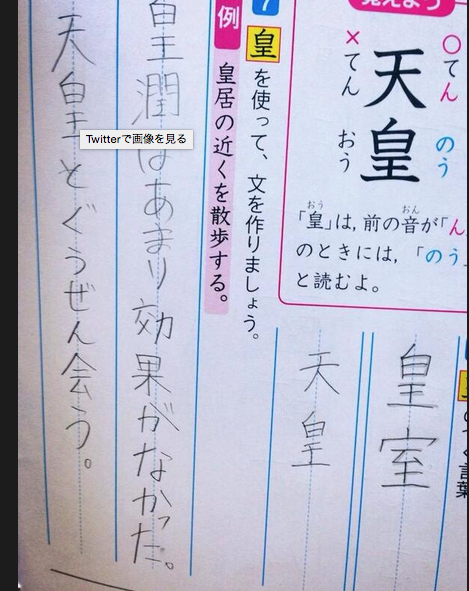 覚えよう
○てんのう
天皇
×てんおう
おう
おん
「皇」は、前の音が「ん
のときには、「のう」
と読むよ。
つく言葉
皇室
天皇
7
皇を使って、文を作りましょう。
例
皇居の近くを散歩する。
皇潤はあまり効果がなかった。
天皇とぐうぜん会う。
Twitterで画像を見る